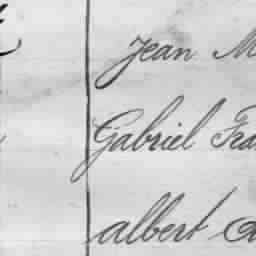 Jean M
Gabriel Fra
albert a